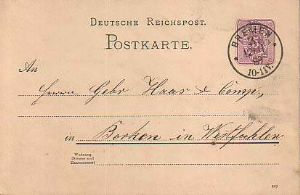 DEUTSCHE REICHSPOST.
POSTKARTE.
BREMEN
10-11V
An
Herren Gebr Haas & Comp.,
in Borken in Westfahlen
Wohnung
(Strasse und
Hausnummer)